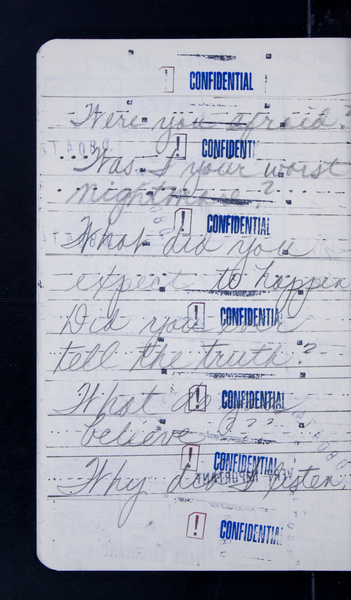 CONFIDENTIAL
Were you afraid?
CONFIDENTI
Was I your worst
nightmare?
CONFIDENTIAL
What did you
expect to happen
CONFIDENTIA
Did you ever
tell the truth?
CONFIDENTIAL
What do you
believe???
CONFIDENTIA
Why don't I listen.
CONFIDENTIA